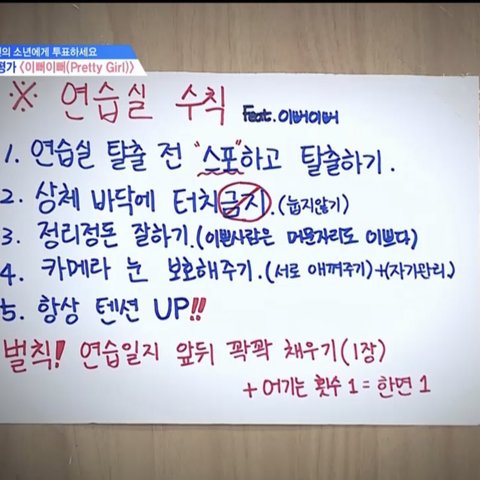 의 소년에게 투표하세요
평가 <이뻐이뻐(Pretty Girl)>
※ 연습실 수칙 Feat. 이뻐이뻐
1. 연습실 탈출 전 "스포"하고 탈출하기.
2. 상체 바닥에 터치금지.(눕지않기)
3. 정리정돈 잘하기.(이쁜사람은 머문자리도 이쁘다)
4. 카메라 눈 보호해주기.(서로 애껴주기)+(자기관리.)
5. 항상 텐션 UP!!
벌칙! 연습일지 앞뒤 꽉꽉 채우기(1장)
+ 어기는 횟수 1 = 한면 1